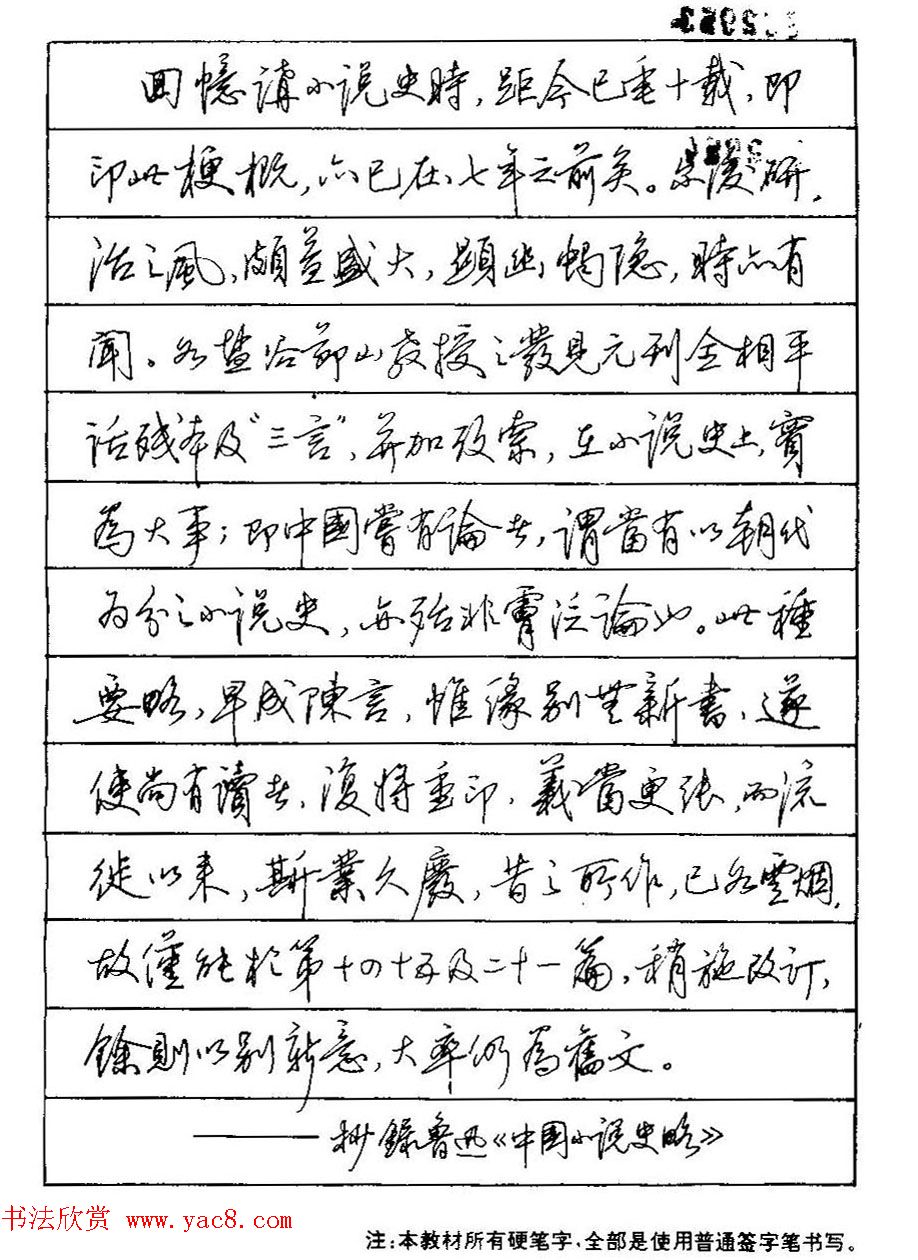 回憶講小说史時,距今已垂十載,即
印此梗概,亦已在七年之前矣。尔後研
治之風,頗益盛大,顯幽燭隐,時亦有
聞。如盐谷節山教授之發見元刊全相平
话残本及“三言”,并加攷索,在小说史上,實
為大事;即中國嘗有論者,谓當有以朝代
为分之小说史,亦殆非膚泛論也。此種
要略,早成陳言,惟缘别無新書,遂
使尚有讀者,復将重印,義當更张,而流
徙以来,斯業久廢,昔之所作,已如雲烟,
故僅能於第十四十五及二十一篇,稍施改訂,
餘則以别新意,大率仍為舊文。
———抄錄魯迅《中国小说史略》
书法欣赏 www.yac8.com
注:本教材所有硬笔字,全部是使用普通签字笔书写。